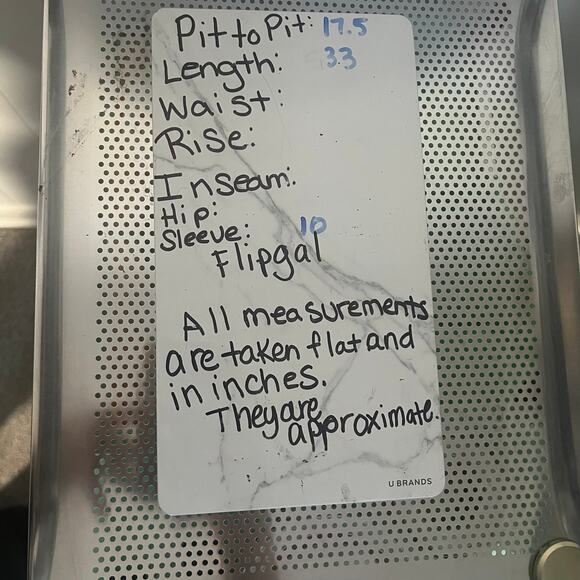 Pit to Pit: 17.5
Length: 33
Waist:
Rise:
Inseam:
Hip:
Sleeve: 10
Flipgal
All measurements
are taken flat and
in inches.
They are
approximate.
U BRANDS